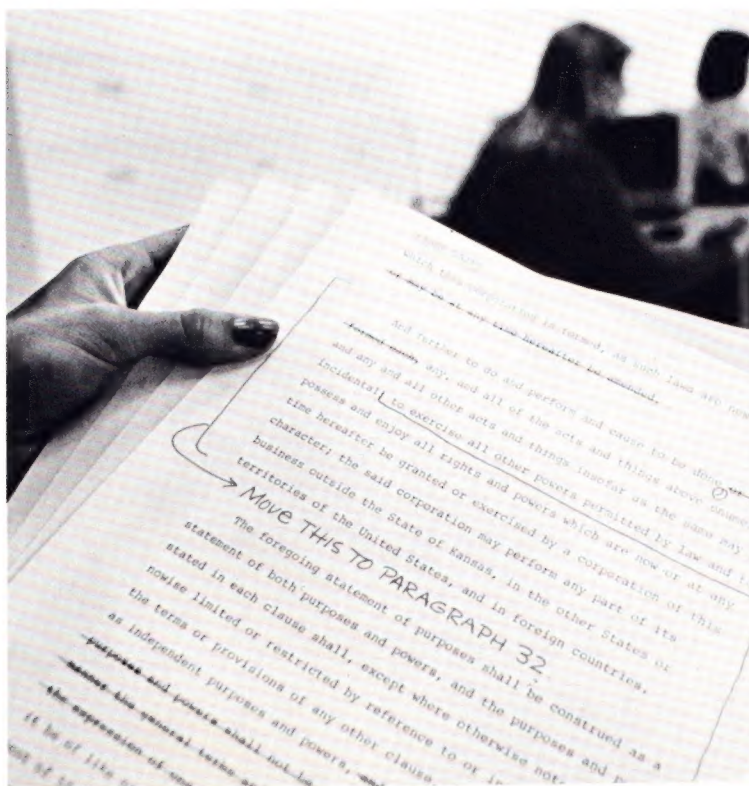 which this corporation is formed, as such laws are now
or may be at any time hereafter be amended.
And further to do and perform and cause to be done or
formed such, any, and all of the acts and things above
and any and all other acts and things insofar as the same may
incidental to exercise all other powers permitted by law and
possess and enjoy all rights and powers which are now or at any
time hereafter be granted or exercised by a corporation of this
character; the said corporation may perform any part of its
business outside the State of Kansas, in the other States or
territories of the United States, and in foreign countries.
MOVE THIS TO PARAGRAPH 32
The foregoing statement of purposes shall be construed as a
statement of both purposes and powers, and the purposes and
stated in each clause shall, except where otherwise
nowise limited or restricted by reference to or
the terms or provisions of any other clause,
as independent purposes and powers,
purposes and powers shall not be
the general terms
the expression of
it be of like